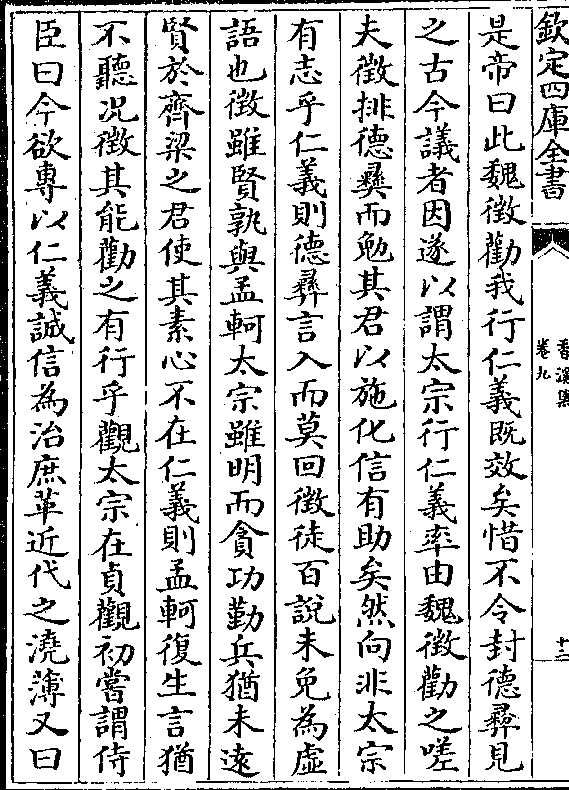 欽定四庫全書
香溪集
卷九
十三
是帝曰此魏徵勸我行仁義既效矣惜不令封德彞見
之古今議者因遂以謂太宗行仁義率由魏徵勸之嗟
夫徵排德彞而勉其君以施化信有助矣然向非太宗
有志乎仁義則德彞言入而莫回徵徒百說未免為虛
語也徵雖賢孰與孟軻太宗雖明而貪功勤兵猶未遠
賢於齊梁之君使其素心不在仁義則孟軻復生言猶
不聽况徵其能勸之有行乎觀太宗在貞觀初嘗謂侍
臣曰今欲專以仁義誠信為治庶革近代之澆薄又曰